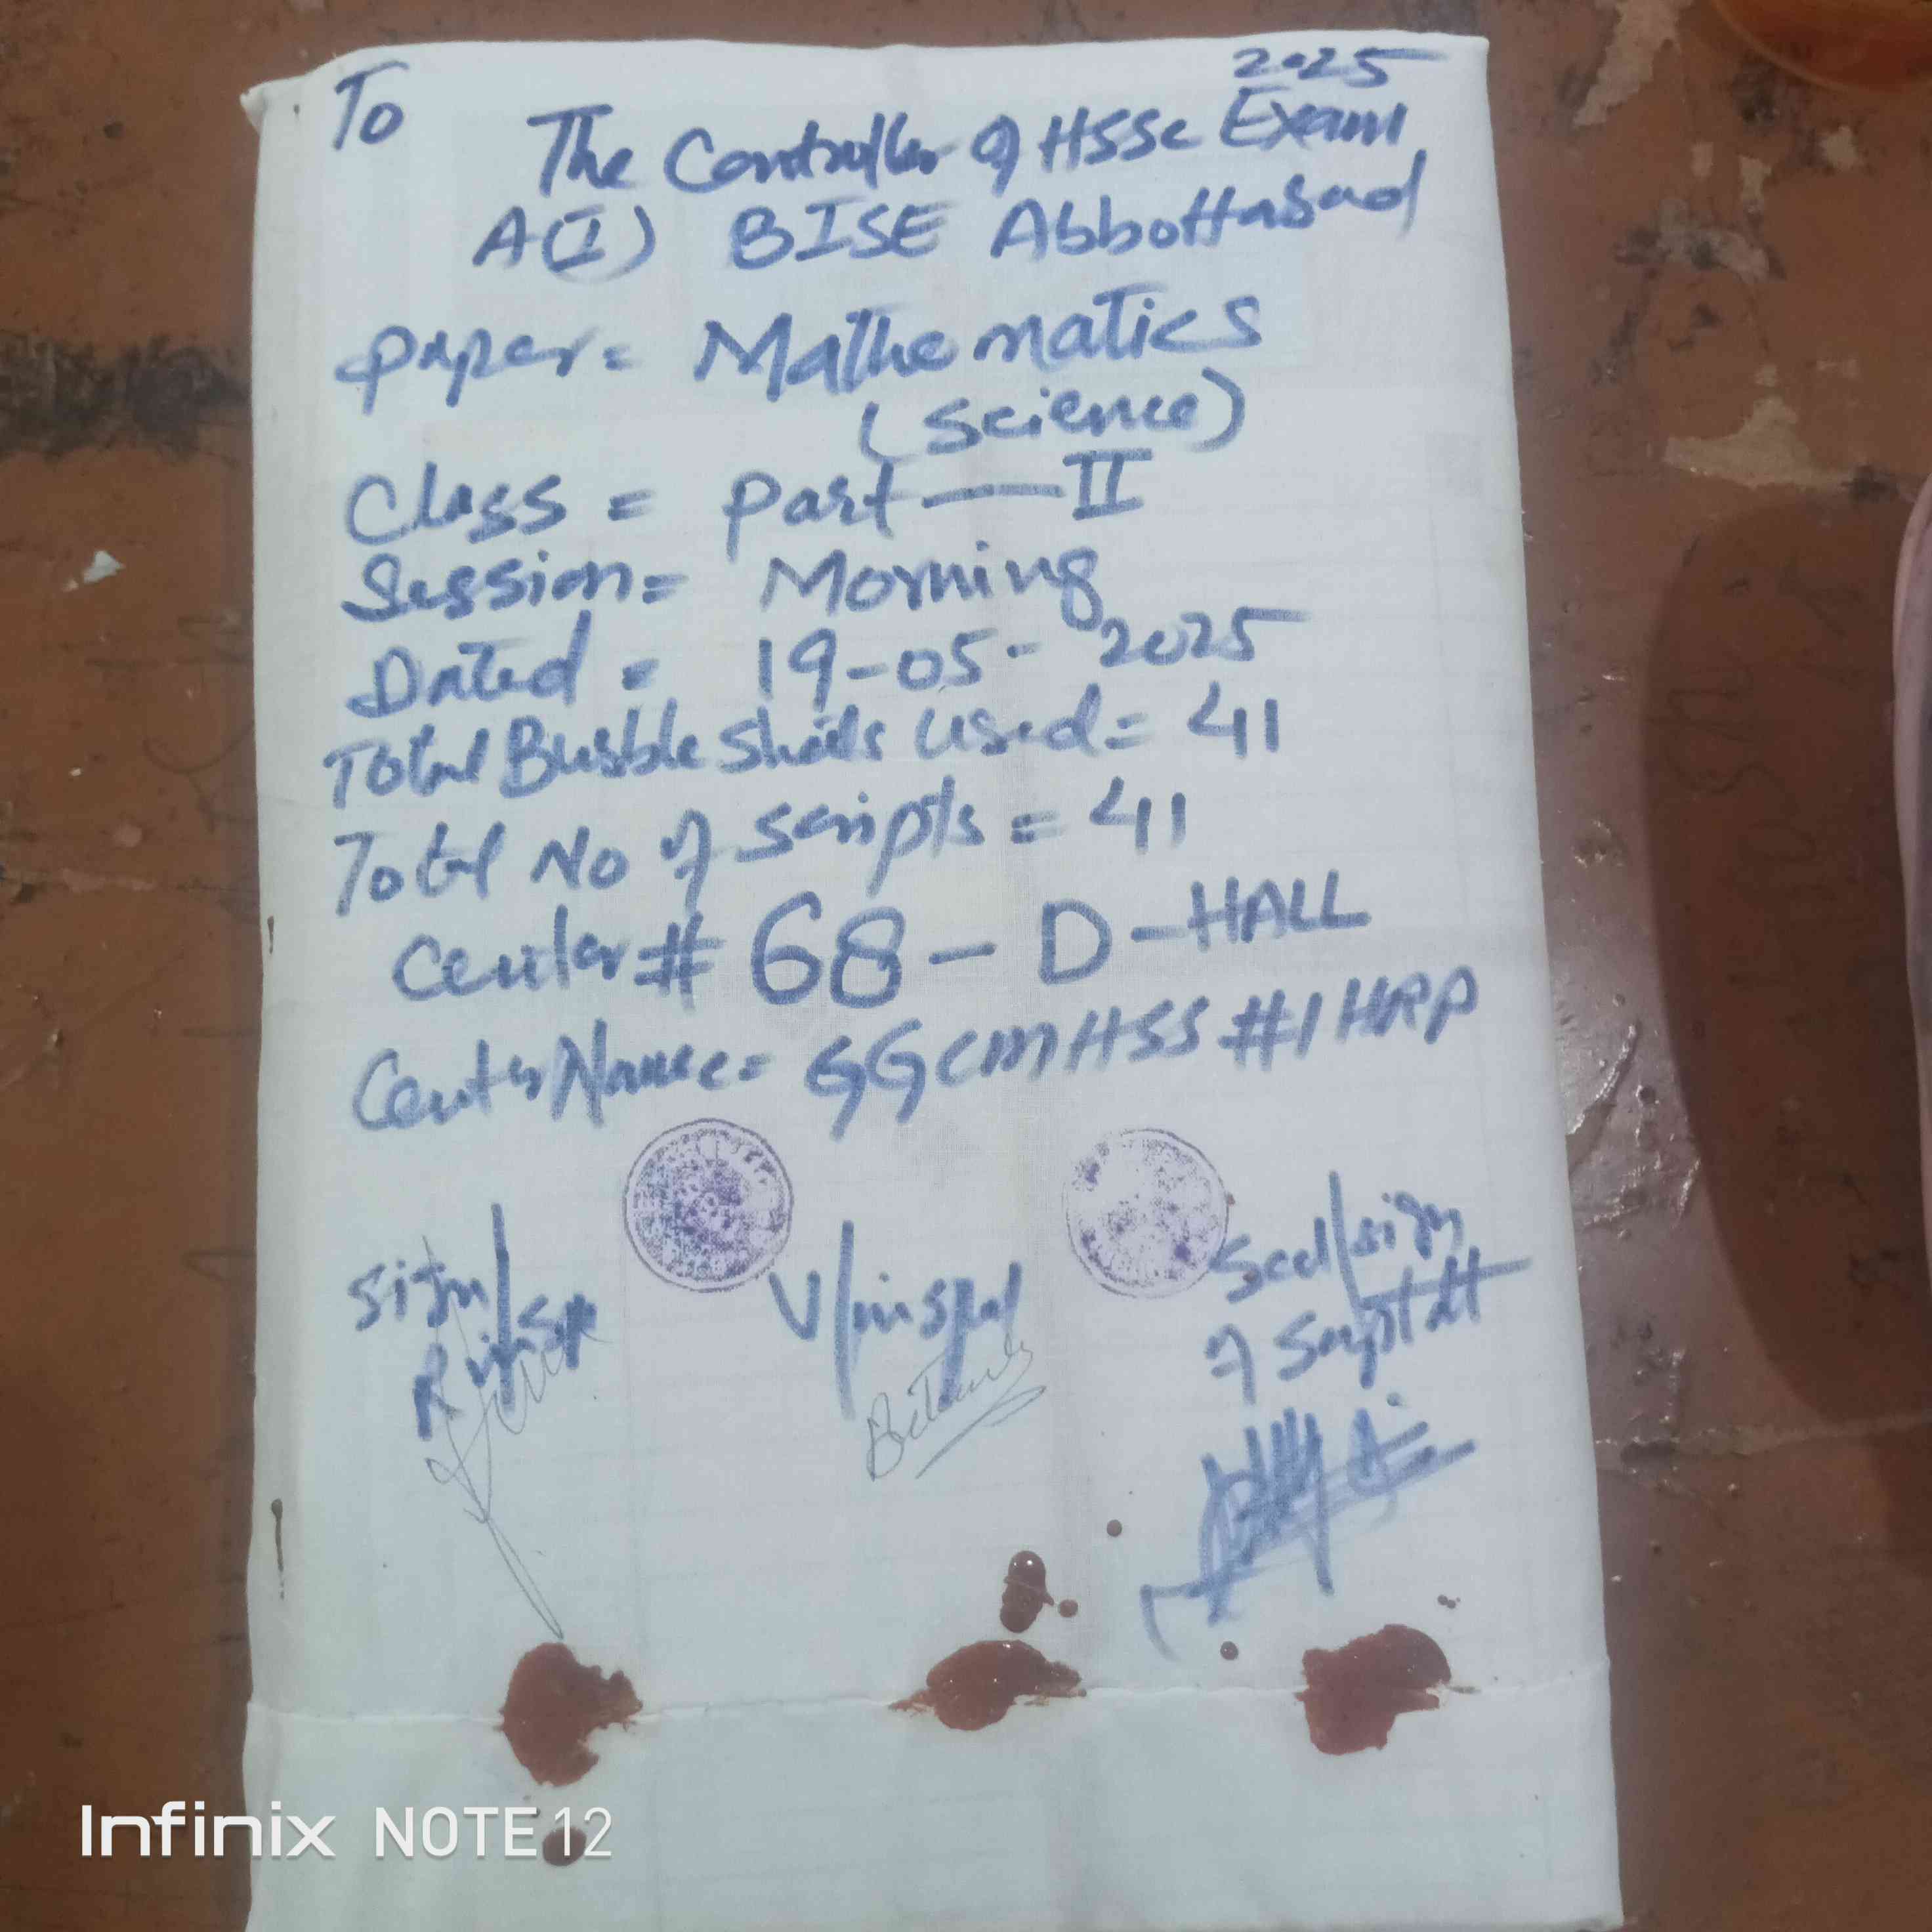 To
2025
The Controller of HSSC Exam
A(I) BISE Abbottabad
Paper = Mathematics
(Science)
Class = Part — II
Session = Morning
Dated = 19-05-2025
Total Bubble Sheets used = 41
Total No of scripts = 41
Center # 68 - D - HALL
Center Name = GGCMHSS #1 HRP
Sign/
R/insp
V/insp
Seal/sign
of Suptdtt
Infinix NOTE 12